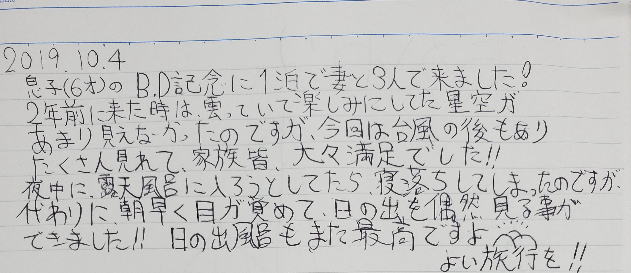 2019.10.4
息子(6才)のB.D記念に1泊で妻と3人で来ました!
2年前に来た時は雲っていて楽しみにしてた星空が
あまり見えなかったのですが、今回は台風の後もあり
たくさん見れて、家族皆、大々満足でした!!
夜中に、露天風呂に入ろうとしてたら寝落ちしてしまったのですが、
代わりに、朝早く目が覚めて、日の出を偶然見る事が
できました!! 日の出風呂もまた最高ですよ
よい旅行を!!